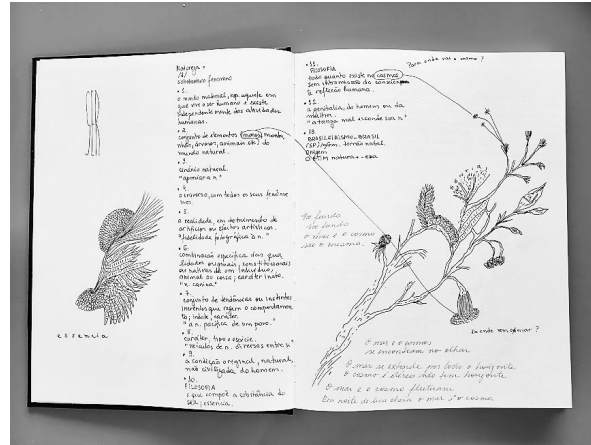 Natureza
/é/
substantivo feminino
• 1.
o mundo material, esp. aquele em
que vive o ser humano e existe
independentemente das atividades
humanas.
• 2.
conjunto de elementos (mares, monta-
nhas, árvores, animais etc.) do
mundo natural.
• 3.
cenário natural.
"apreciar a n."
• 4.
o universo, com todos os seus fenôme
nos.
• 5.
a realidade, em detrimento de
artifícios ou efeitos artísticos.
"fidelidade fotográfica à n."
• 6.
combinação específica das qua
lidades originais, constitucionais
ou nativas de um indivíduo,
animal ou coisa; caráter inato.
"n. canina"
• 7.
conjunto de tendências ou instintos
inerentes que regem o comportamen
to; índole, caráter.
"a n. pacífica de um povo."
• 8.
caráter, tipo, espécie.
"veículos de n. diversas entre si"
• 9.
a condição original, natural,
não civilizada do homem.
• 10.
FILOSOFIA
o que compõe a substância do
ser; essência.
essencia
• 11.
FILOSOFIA
tudo quanto existe no cosmos
sem intromissão da
à reflexão humana.
• 12.
a genitália, do homem ou da
mulher.
"a tanga mal esconde sua n."
• 13.
BRASILEIRISMO • BRASIL
terrão natal.
origem
Para onde vai o cosmo?
No fundo
No fundo
o mar e o cosmo
são o mesmo.
Da onde vem o mar?
O mar e o cosmos
se encontram no olhar
O mar se extende por todo o horizonte
O cosmo é etéreo não tem horizonte
O mar e o cosmo flutuam
Em noite de lua cheia o mar é o cosmo